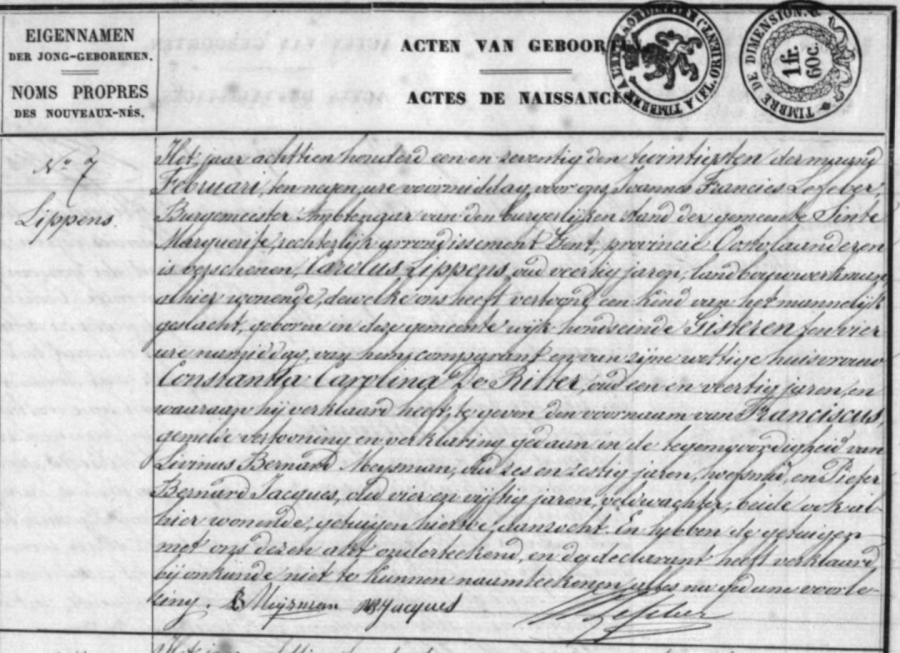 EIGENNAMEN
DER JONG-GEBORENEN.
NOMS PROPRES
DES NOUVEAUX-NÉS.
ACTEN VAN GEBOORTE
ACTES DE NAISSANCES
TIMBRE DE DIMENSION.
1 fr.
60 c.
No 7
Lippens
Het jaar achttien honderd een en zeventig den twintigsten der maand
Februari, ten negen ure voormiddag, voor ons Joannes Francies Lefeber
Burgemeester Ambtenaar van den burgerlijken stand der gemeente Sinte
Margueriте, rechterlijk arrondissement Gent, provincie Oostvlaanderen
is verschenen, Carolus Lippens, oud veertig jaren, landbouwwerkman
alhier wonende, dewelke ons heeft vertoond een kind van het mannelijk
geslacht, geboren in deze gemeente wijk hondseinde Gisteren ten vier
ure namiddag, van hem comparant en van zijne wettige huisvrouw
Constantia Carolina De Ritter, oud een en veertig jaren, en
waaraan hij verklaard heeft te geven den voornaam van Franciscus,
gemelde vertooning en verklaring gedaan in de tegenwoordigheid van
Livinus Bernard Meysman, oud zes en zestig jaren, hoefsmid, en Pieter
Bernard Jacques, oud vier en vijftig jaren, veldwachter, beide ook al-
hier wonende, getuigen hiertoe aanzocht. En hebben de getuigen
met ons dezen akt onderteekend, en de declarant heeft verklaard
bij onkunde niet te kunnen naamteekenen, alles na gedane voorle-
zing. B Meysman Jacques Lefeber